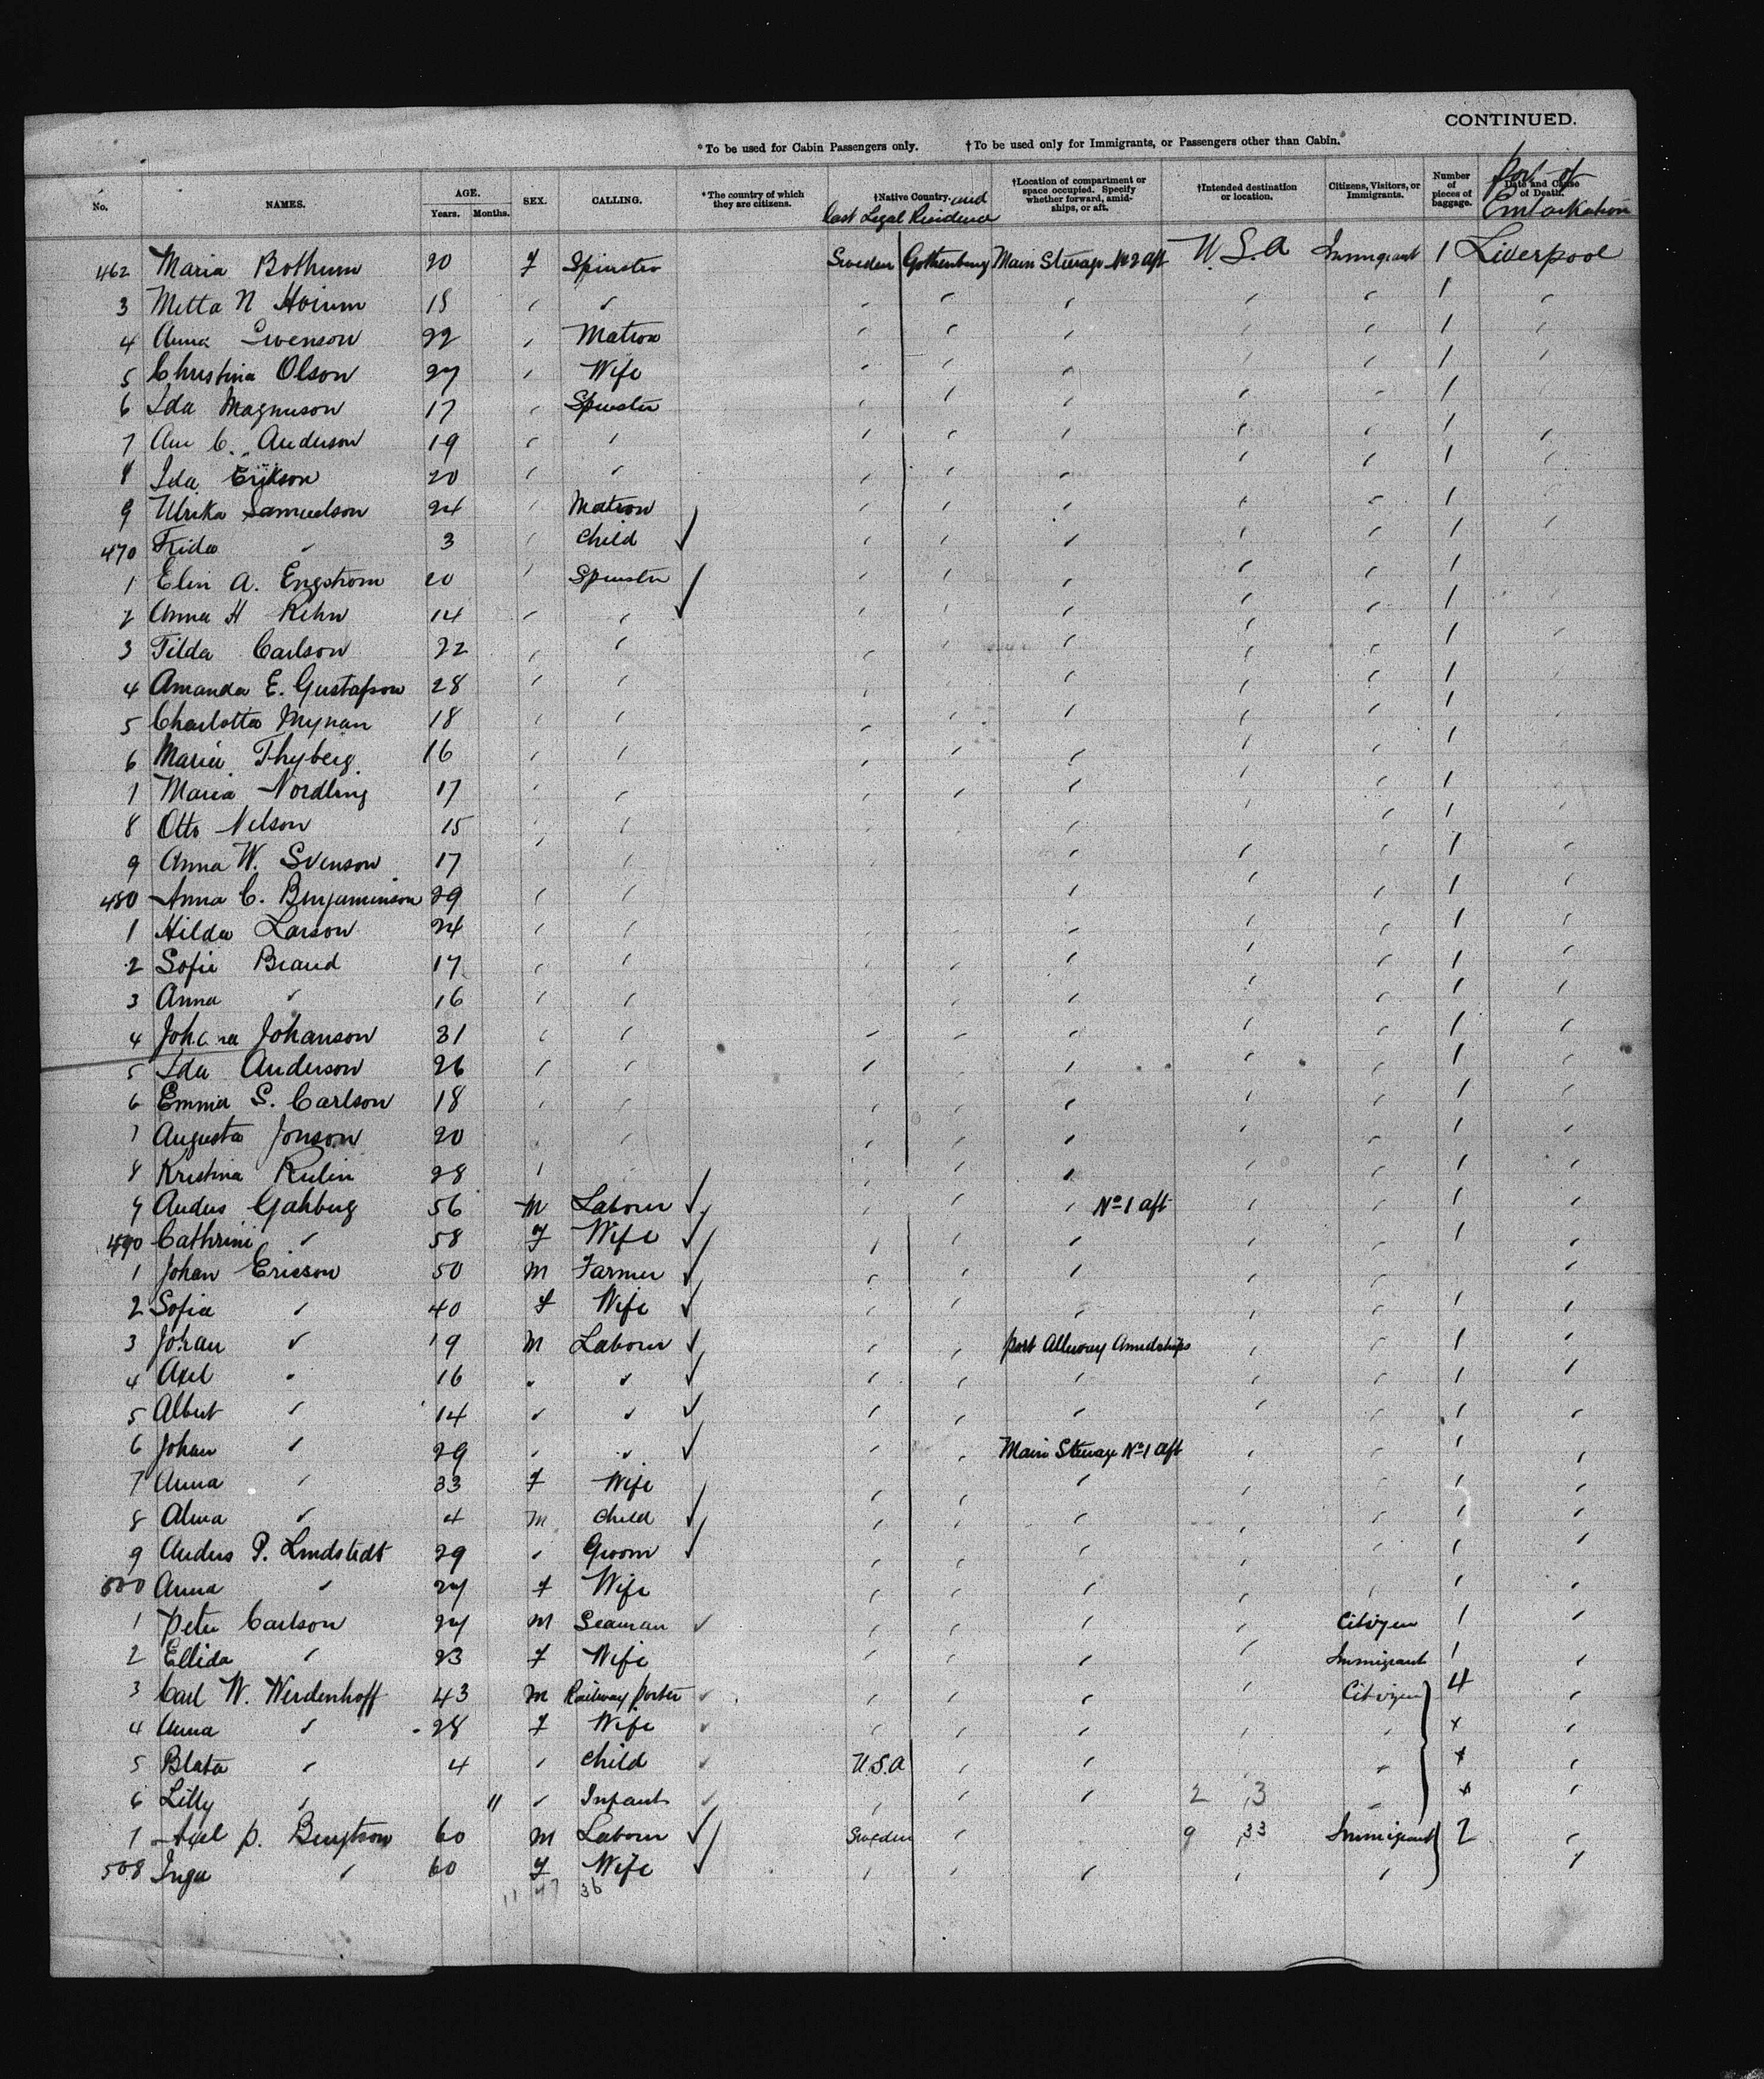 CONTINUED.
*To be used for Cabin Passengers only. †To be used only for Immigrants, or Passengers other than Cabin.
No. NAMES. AGE. Years. Months. SEX. CALLING. *The country of which they are citizens. †Native Country. and Last Legal Residence †Location of compartment or space occupied. Specify whether forward, amidships, or aft. †Intended destination or location. Citizens, Visitors, or Immigrants. Number of pieces of baggage. Date and Cause of Death. Port of Embarkation
462 Maria Bothum 20 F Spinster Sweden Gothenburg Main Steerage No 2 aft U.S.A Immigrant 1 Liverpool
3 Metta N Hvium 18 " " " " " " " 1 "
4 Anna Swenson 22 " Matron " " " " " 1 "
5 Christina Olson 27 " Wife " " " " " 1 "
6 Ida Magnuson 17 " Spinster " " " " " 1 "
7 Ann C. Anderson 19 " " " " " " " 1 "
8 Ida Erikson 20 " " " " " " " 1 "
9 Ulrika Samuelson 24 " Matron " " " " " 1 "
470 Frida " 3 " Child ✓ " " " " " 1 "
1 Elin A. Engstrom 20 " Spinster ✓ " " " " " 1
2 Anna H Rehn 14 " " " " " " " 1
3 Tilda Carlson 22 " " " " " " " 1 "
4 Amanda E. Gustafson 28 " " " " " " " 1 "
5 Charlotta Mynan 18 " " " " " " " 1 "
6 Maria Thyberg 16 " " " " " " " 1
7 Maria Nordling 17 " " " " " " " 1 "
8 Otto Nelson 15 " " " " " " " 1 "
9 Anna W. Svenson 17 " " " " " " " 1 "
480 Anna C. Benjaminson 29 " " " " " " " 1 "
1 Hilda Larson 24 " " " " " " " 1 "
2 Sofie Brand 17 " " " " " " " 1 "
3 Anna " 16 " " " " " " " 1 "
4 Johana Johanson 31 " " " " " " " 1 "
5 Ida Anderson 26 " " " " " " " 1 "
6 Emma S. Carlson 18 " " " " " " " 1 "
7 Augusta Jonson 20 " " " " " " " 1 "
8 Kristina Rulin 28 " " " " " " 1 "
9 Anders Gahberg 56 M Labourer ✓ " " " No 1 aft " " 1 "
490 Cathrine " 58 F Wife ✓ " " " " " 1 "
1 Johan Ericson 50 M Farmer ✓ " " " " " "
2 Sofia " 40 F Wife ✓ " " " " " 1 "
3 Johan " 19 M Labourer ✓ " " Port Alleway Amidships " " 1 "
4 Axel " 16 " " ✓ " " " " " 1 "
5 Albert " 14 " " ✓ " " " " " 1 "
6 Johan " 29 " " ✓ " " Main Steerage No 1 aft " " 1 "
7 Anna " 33 F Wife " " " " " 1 "
8 Alma " 4 M Child ✓ " " " " " 1 "
9 Anders P. Lindstedt 29 " Groom ✓ " " " " " 1 "
500 Anna " 27 F Wife " " " " " 1 "
1 Peter Carlson 27 M Seaman ✓ " " " " Citizen 1 "
2 Ellida " 23 F Wife " " " " Immigrant 1 "
3 Carl W. Werdenhoff 43 M Railway porter ✓ " " " " Citizen 4 "
4 Anna " 28 F Wife ✓ " " " " " x "
5 Blata " 4 " Child ✓ U.S.A " " " " x "
6 Lilly " 11 " Infant ✓ " " " 2 3 " x "
7 Axel P. Bengtson 60 M Labourer ✓ Sweden " 9 33 Immigrant 2 "
508 Inga " 60 F Wife ✓ " " " " " "
11 47 36